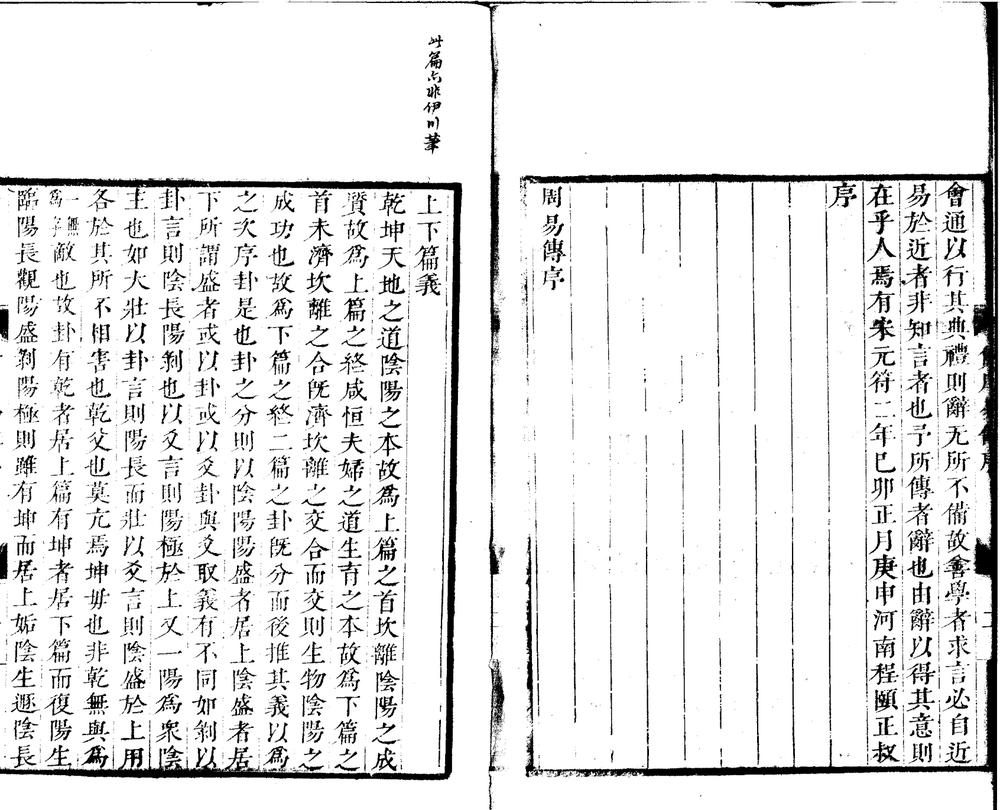 會通以行其典禮則辭无所不備故善學者求言必自近
易於近者非知言者也予所傳者辭也由辭以得其意則
在乎人焉有宋元符二年已卯正月庚申河南程頤正叔
序
周易傳序
此篇亦非伊川筆
上下篇義
乾坤天地之道陰陽之本故爲上篇之首坎離陰陽之成
質故爲上篇之終咸恒夫婦之道生育之本故爲下篇之
首未濟坎離之合旣濟坎離之交合而交則生物陰陽之
成功也故爲下篇之終二篇之卦旣分而後推其義以爲
之次序卦是也卦之分則以陰陽陽盛者居上陰盛者居
下所謂盛者或以卦或以爻卦與爻取義有不同如剝以
卦言則陰長陽剝也以爻言則陽極於上又一陽爲衆陰
主也如大壯以卦言則陽長而壯以爻言則陰盛於上用
各於其所不相害也乾父也莫亢焉坤毋也非乾無與爲
一無爲字敵也故卦有乾者居上篇有坤者居下篇而復陽生
臨陽長觀陽盛剝陽極則雖有坤而居上姤陰生遯陰長